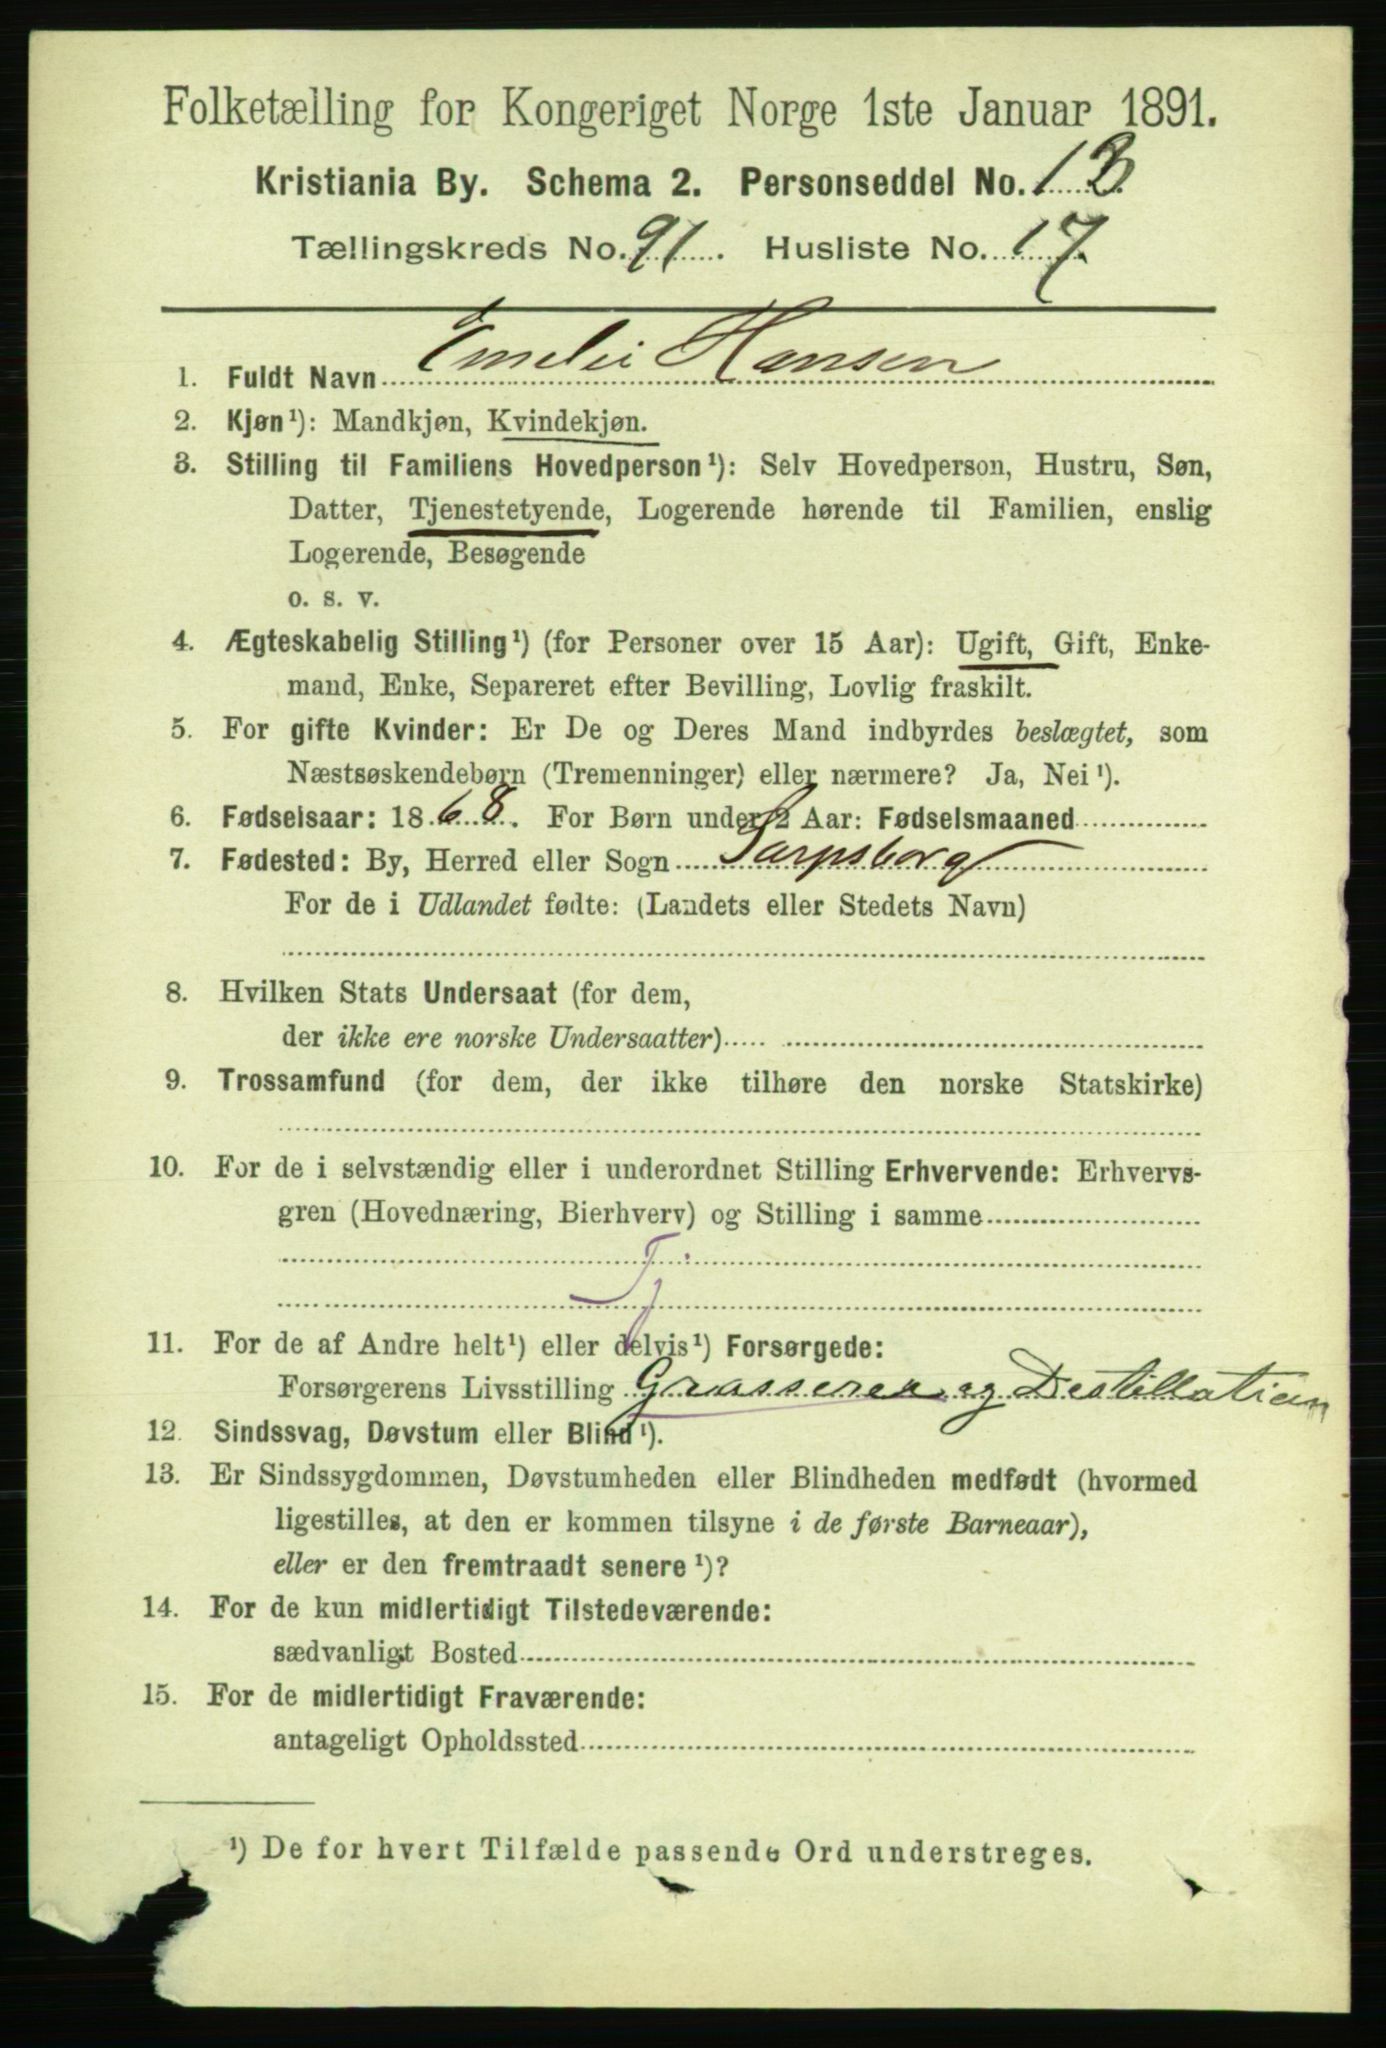 Folketælling for Kongeriget Norge 1ste Januar 1891.
Kristiania By. Schema 2. Personseddel No. 13.
Tællingskreds No. 91. Husliste No. 17.
1. Fuldt Navn Emelie Hansen
2. Kjøn¹): Mandkjøn, Kvindekjøn.
3. Stilling til Familiens Hovedperson¹): Selv Hovedperson, Hustru, Søn,
Datter, Tjenestetyende, Logerende hørende til Familien, enslig
Logerende, Besøgende
o. s. v.
4. Ægteskabelig Stilling¹) (for Personer over 15 Aar): Ugift, Gift, Enke-
mand, Enke, Separeret efter Bevilling, Lovlig fraskilt.
5. For gifte Kvinder: Er De og Deres Mand indbyrdes beslægtet, som
Næstsøskendebørn (Tremenninger) eller nærmere? Ja, Nei¹).
6. Fødselsaar: 1868. For Børn under 2 Aar: Fødselsmaaned
7. Fødested: By, Herred eller Sogn Sarpsborg
For de i Udlandet fødte: (Landets eller Stedets Navn)
8. Hvilken Stats Undersaat (for dem,
der ikke ere norske Undersaatter)
9. Trossamfund (for dem, der ikke tilhøre den norske Statskirke)
10. For de i selvstændig eller i underordnet Stilling Erhvervende: Erhvervs-
gren (Hovednæring, Bierhverv) og Stilling i samme
Tj.
11. For de af Andre helt¹) eller delvis¹) Forsørgede:
Forsørgerens Livsstilling og Destillation
12. Sindssvag, Døvstum eller Blind¹).
13. Er Sindssygdommen, Døvstumheden eller Blindheden medfødt (hvormed
ligestilles, at den er kommen tilsyne i de første Barneaar),
eller er den fremtraadt senere¹)?
14. For de kun midlertidigt Tilstedeværende:
sædvanligt Bosted
15. For de midlertidigt Fraværende:
antageligt Opholdssted
¹) De for hvert Tilfælde passende Ord understreges.